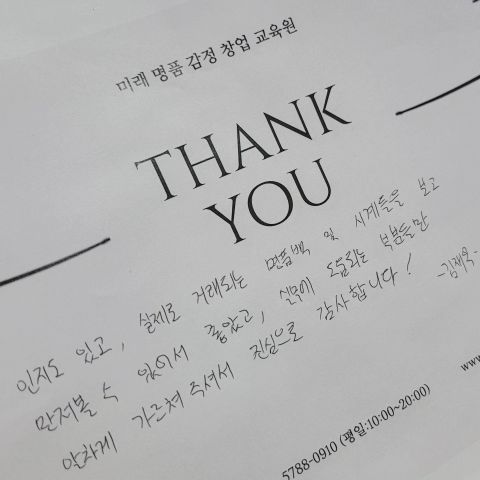 미래 명품 감정 창업 교육원
THANK
YOU
인지도 있고, 실제로 거래되는 명품백 및 시계들을 보고
만져볼 수 있어서 좋았고, 실무에 도움되는 부분들만
알차게 가르쳐 주셔서 진심으로 감사합니다!
-김재욱-
5788-0910 (평일:10:00~20:00)
www